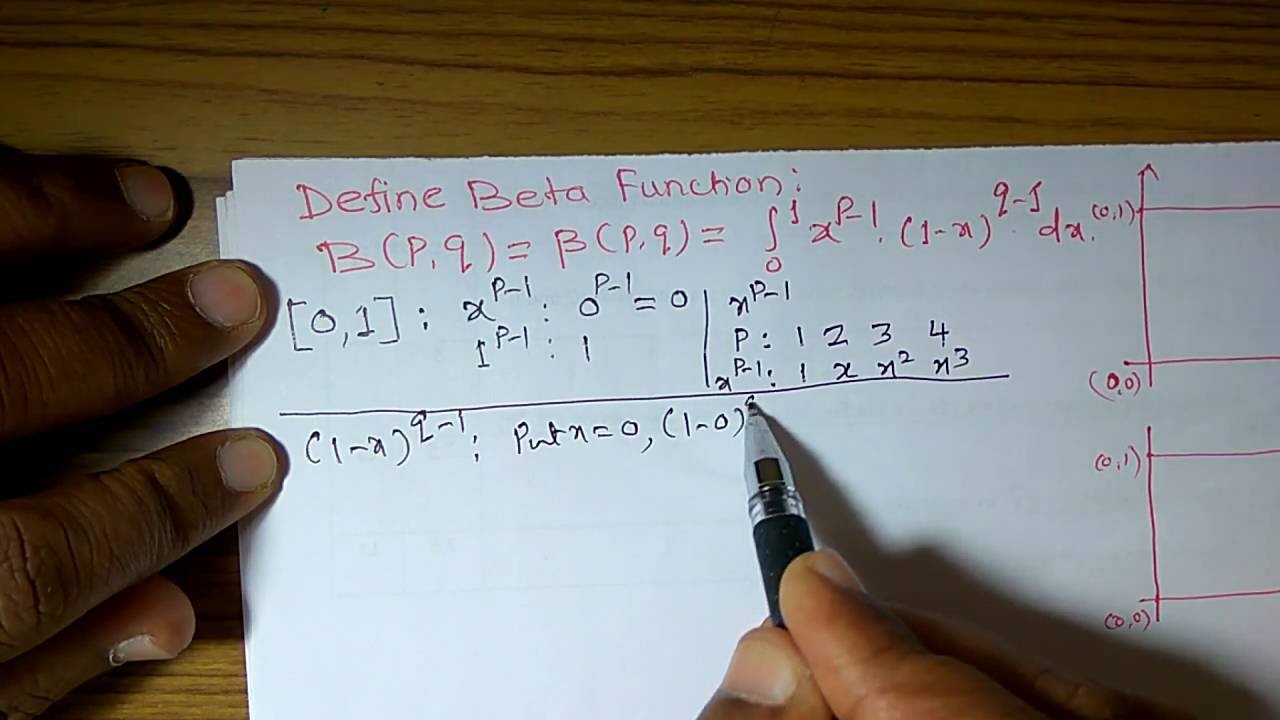 Define Beta Function:
B(P,q) = β(P,q) = ∫₀¹ x^{P-1}. (1-x)^{q-1}. dx.
[0,1] : x^{P-1} : 0^{P-1} = 0
1^{P-1} : 1
x^{P-1}
P : 1 2 3 4
x^{P-1} : 1 x x² x³
(1-x)^{q-1} ; Put x=0, (1-0)
(0,1)
(0,0)
(0,1)
(0,0)